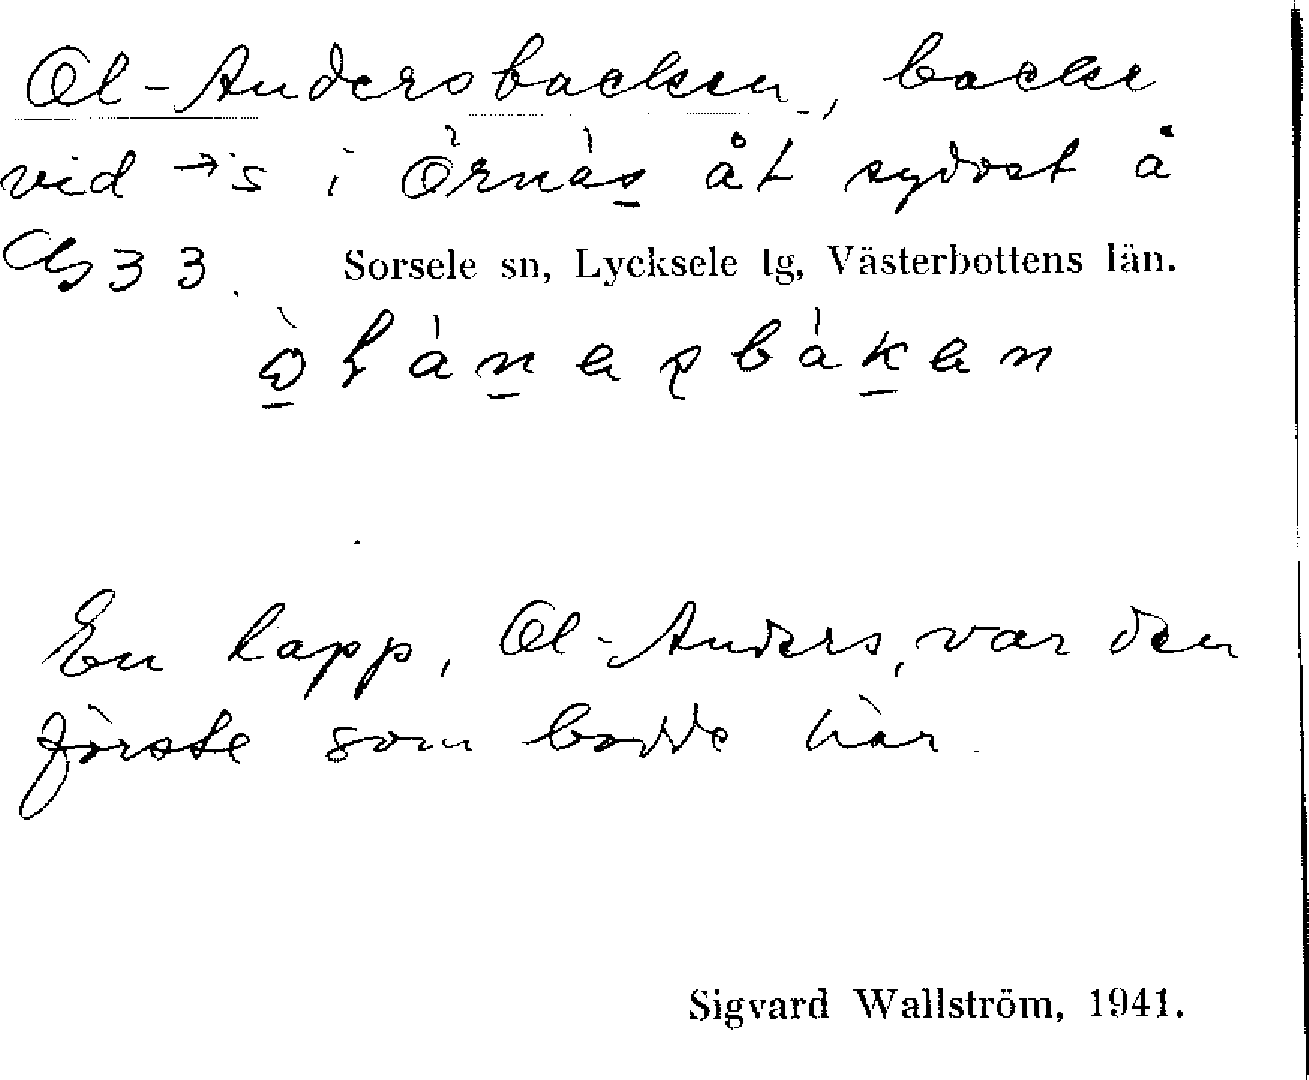 Ol-Andersbacken, backe
vid →'s i Örnäs åt sydost å
33. Sorsele sn, Lycksele lg, Västerbottens län.
En lapp, Ol-Anders, var den
förste som bodde här.
Sigvard Wallström, 1941.